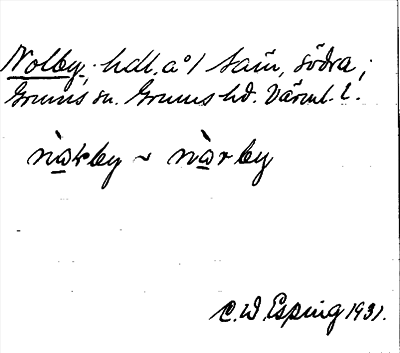 Nolby, hdl. a° 1 Säm, södra;
Grums sn. Grums hd. Värml. l.
nàrby ~ nàrby
C. W. Esping 1931.